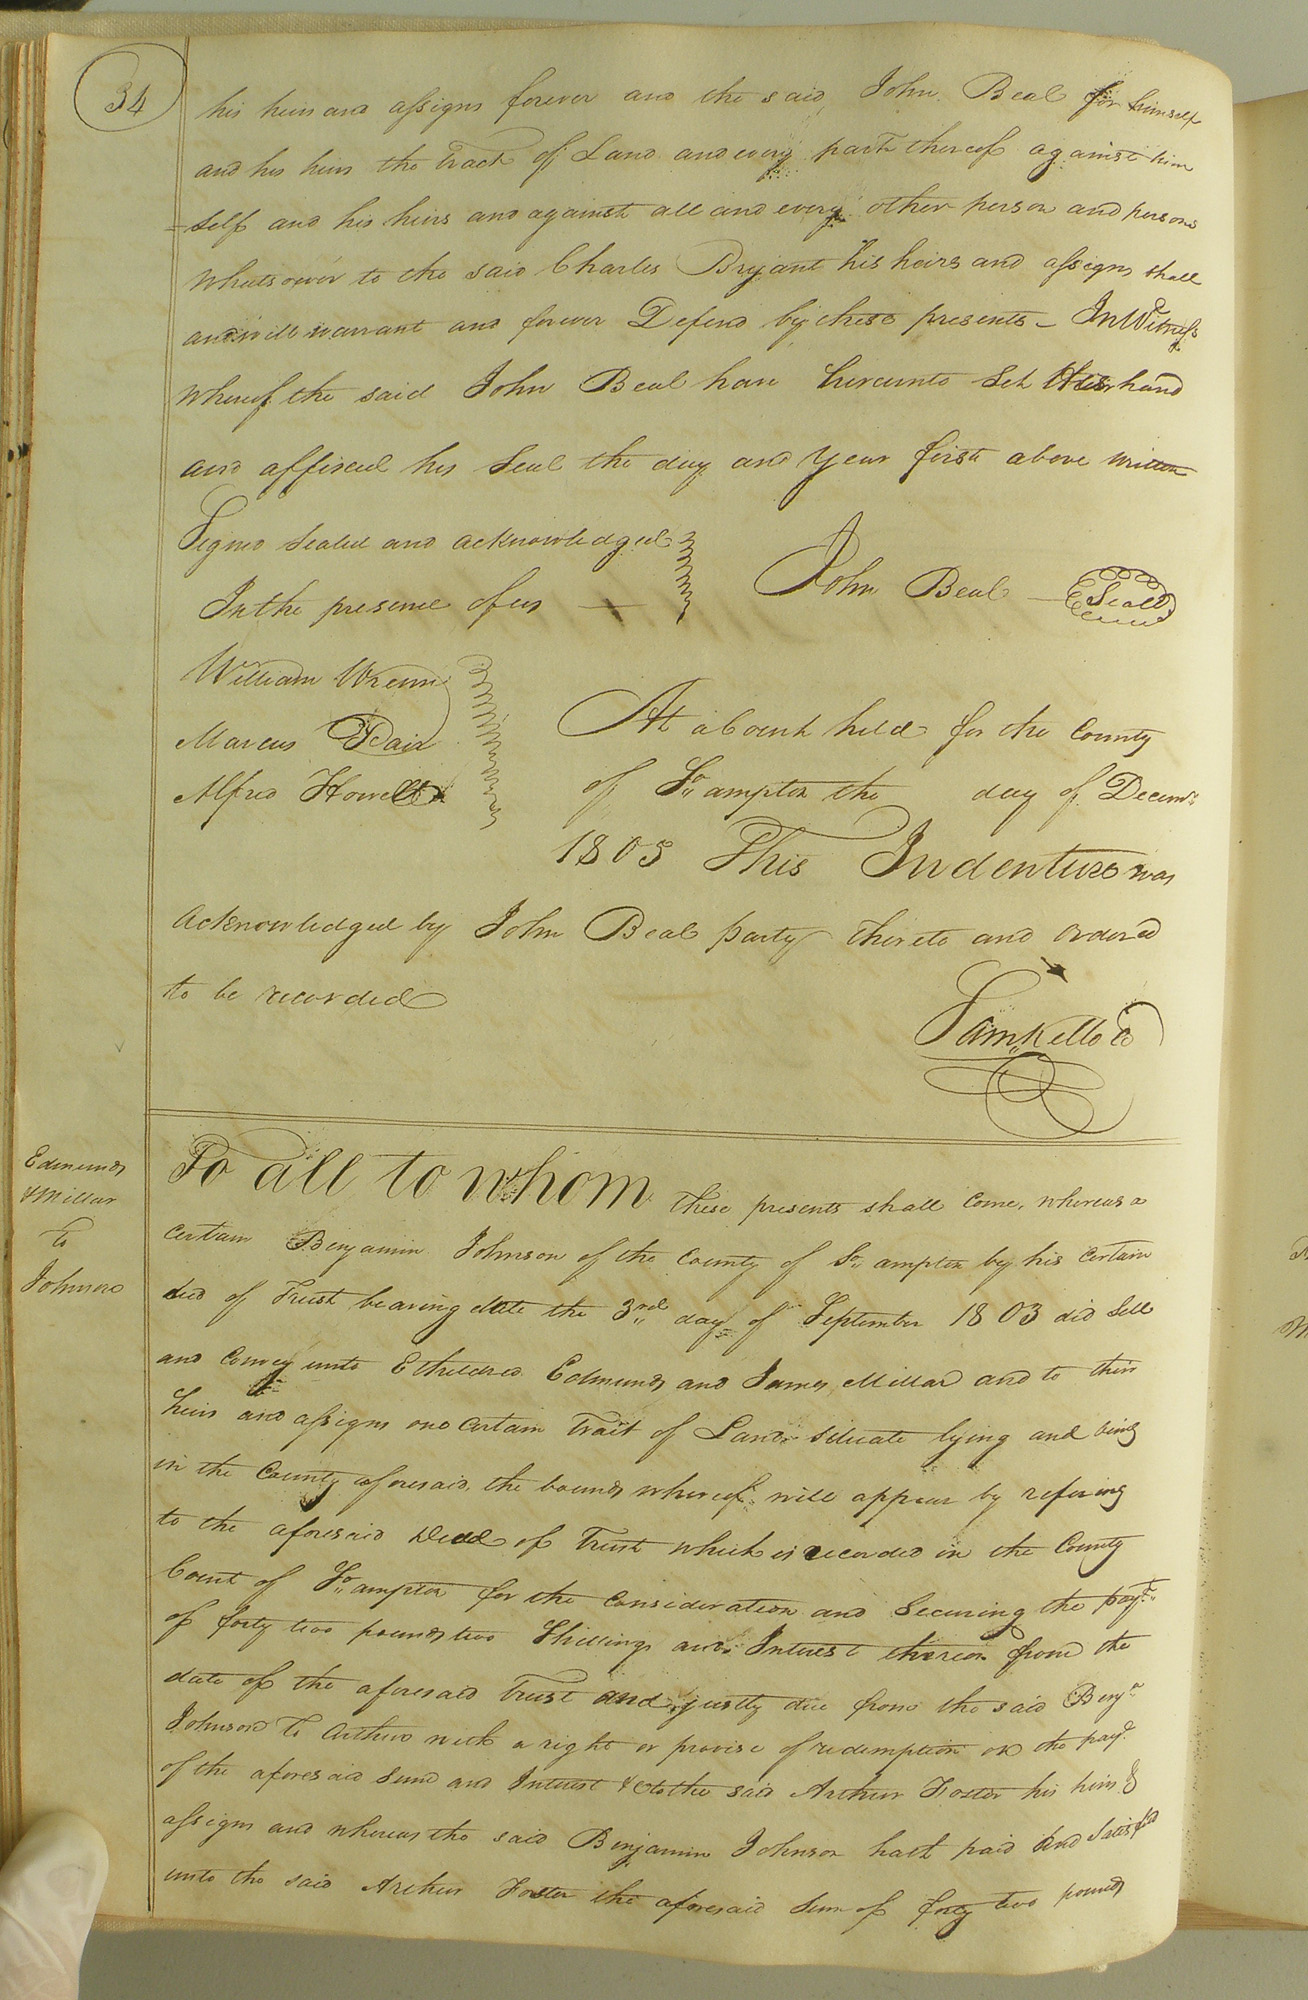 34
his heirs and assigns forever and the said John Beal for himself
and his heirs the Tract of Land and every part thereof against him
=self and his heirs and against all and every other person and persons
whatsoever to the said Charles Bryant his heirs and assigns shall
and will warrant and forever Defend by these presents - In Witness
whereof the said John Beal have hereunto Set His hand
and affixed his Seal the day and Year first above written
Signed Sealed and acknowledged
In the presence of us
John Beal
Seal
William Wrenn
Marcus Dair
Alfred Howell
At a Court held for the County
of So,, ampton the day of Decemr
1805 This Indenture was
Acknowledged by John Beal party thereto and ordered
to be recorded
Sam,, Kello Cc
Edmunds
& Millar
To
Johnson
To all to whom these presents shall come, whereas a
certain Benjamin Johnson of the County of So,, ampton by his certain
deed of Trust bearing date the 3rd,, day of September 1803 did Sell
and Convey unto Etheldred Edmunds and James Millar and to their
heirs and assigns one certain Trait of Land situate lying and being
in the County aforesaid, the bounds whereof will appear by refering
to the aforesaid Deed of Trust which is recorded in the County
Court of So,, ampton for the Consideration and Securing the payt,,
of forty two pounds two Shillings and Interest thereon from the
date of the aforesaid Trust and justly due from the said Benjn
Johnson to Arthur with a right or provise of redemption on the payt
of the aforesaid Sum and Interest & to the said Arthur Foster his heirs &
assigns and whereas the said Benjamin Johnson hath paid and Satisfid
unto the said Arthur Foster the aforesaid Sum of forty two pounds